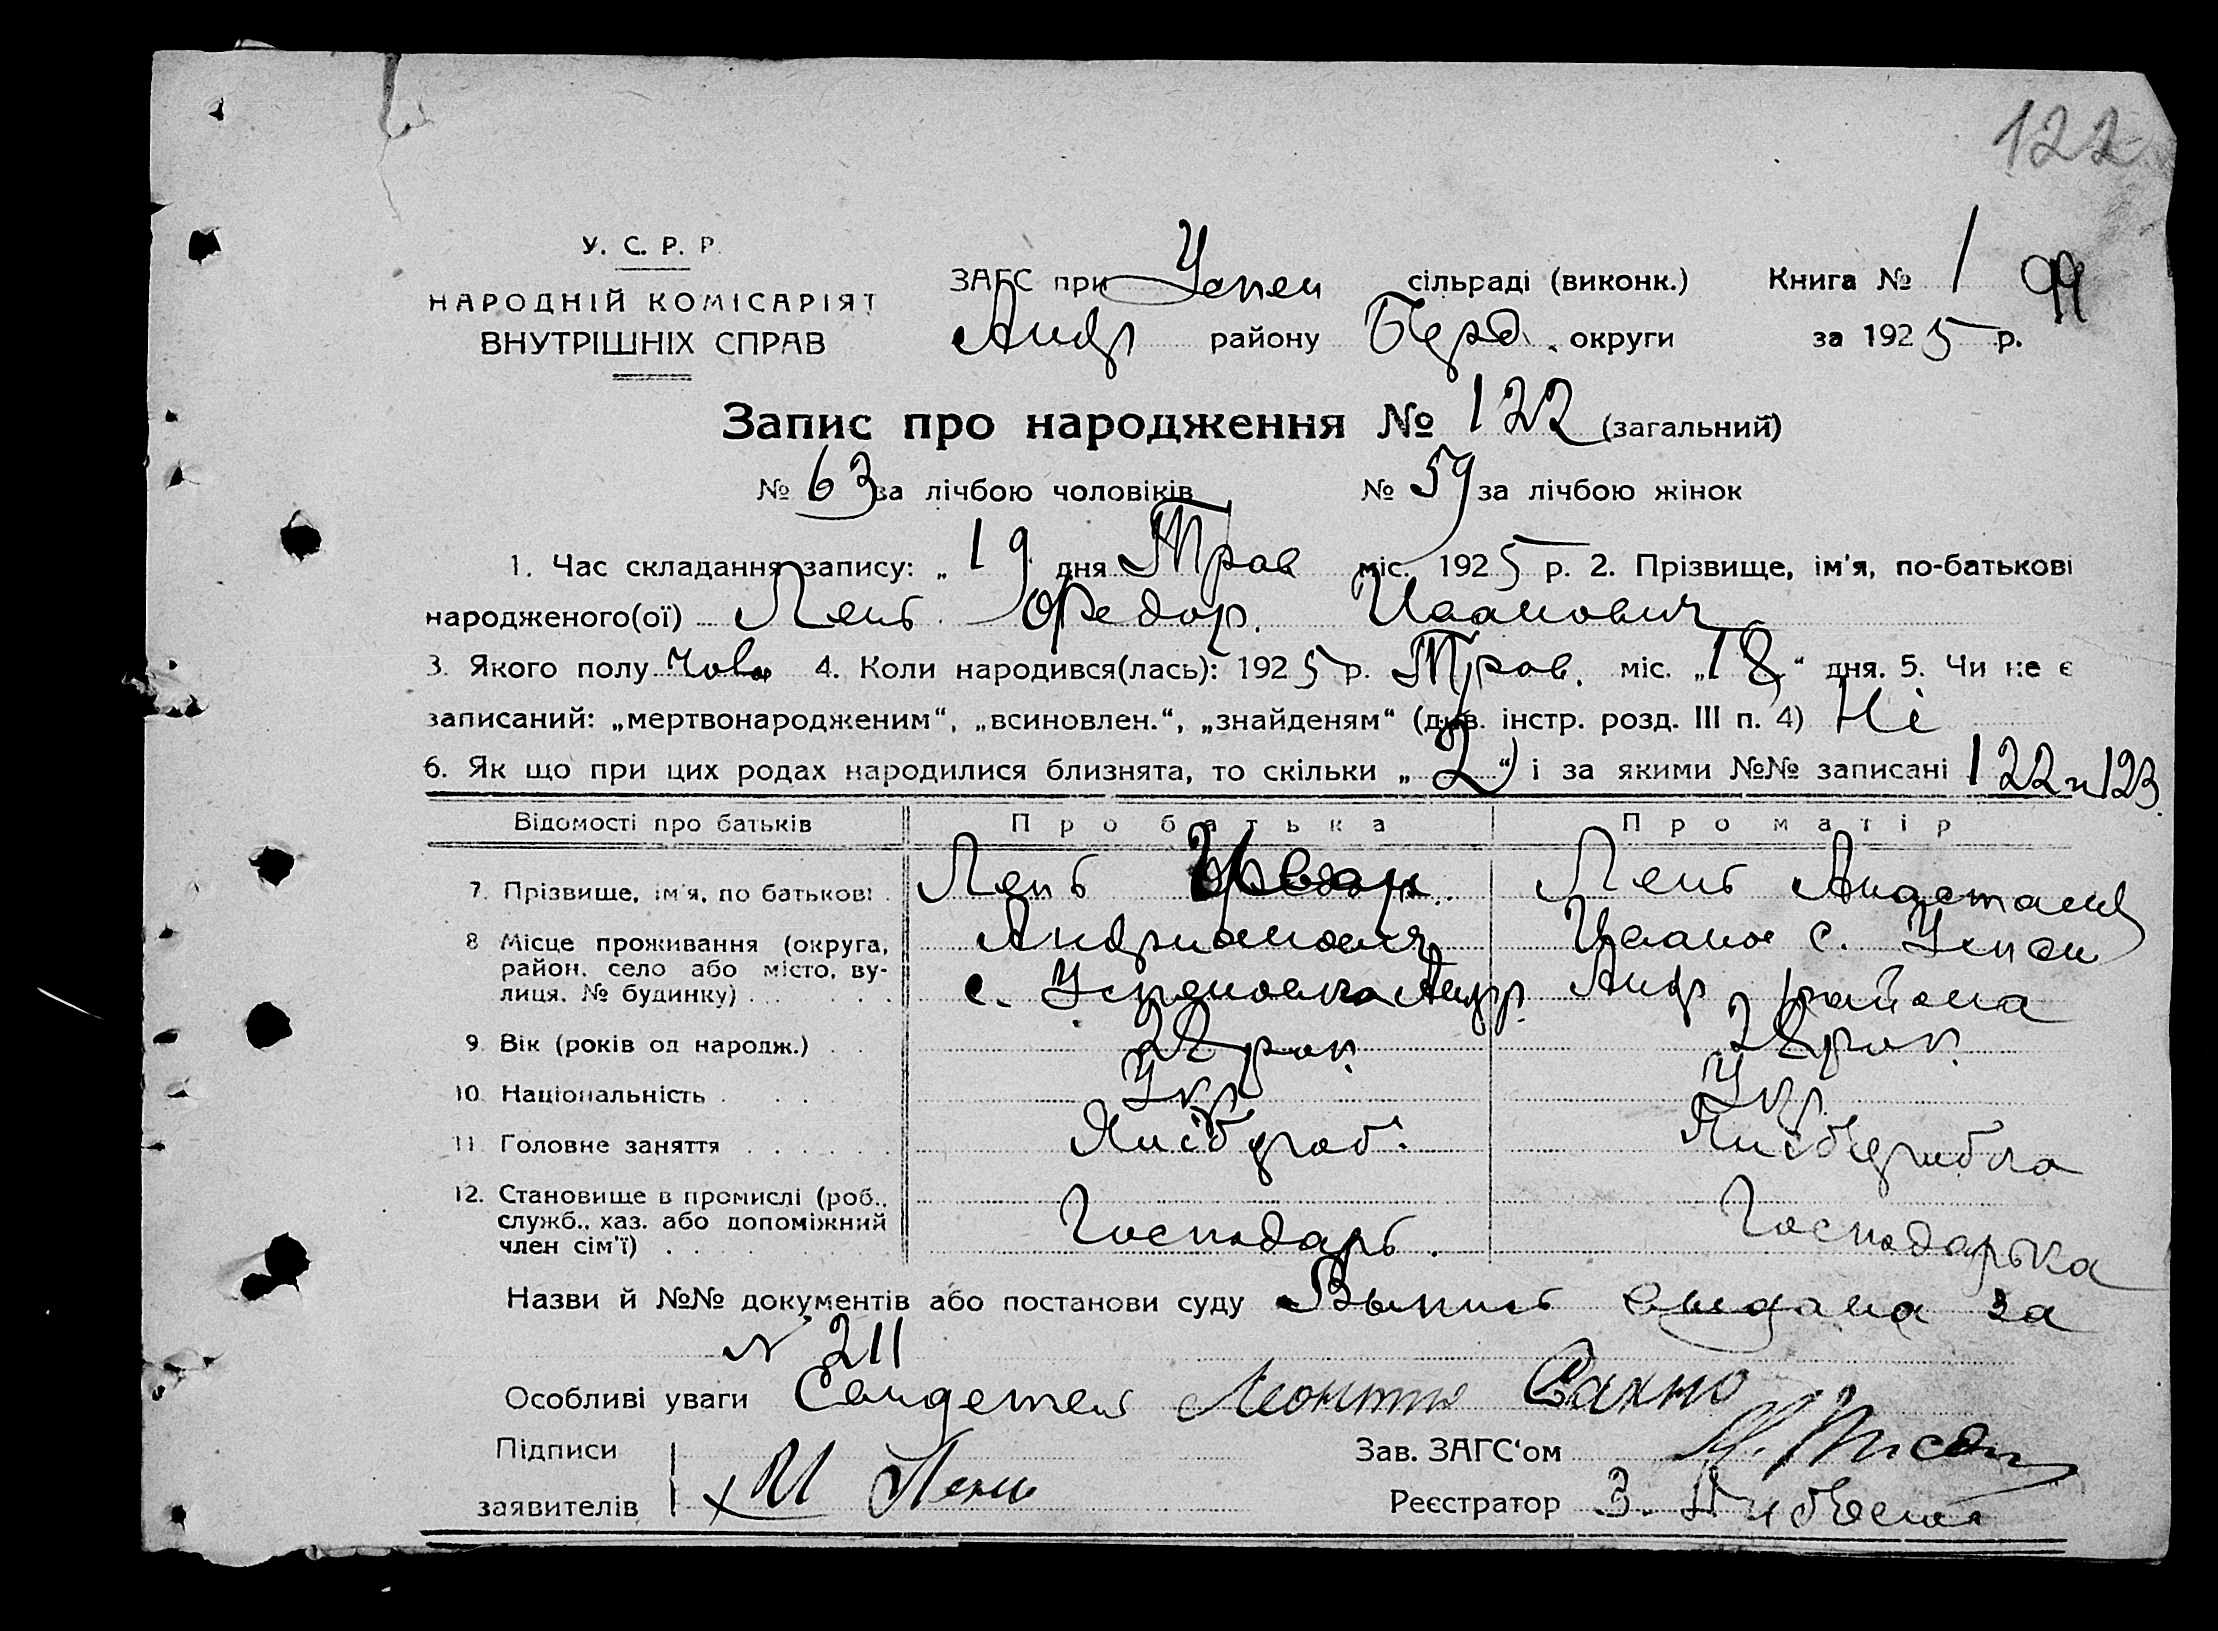 122
У. С. Р. Р.
НАРОДНІЙ КОМІСАРІЯТ
ВНУТРІШНІХ СПРАВ
ЗАГС при Успен сільраді (виконк.) Книга № 1 99
Андр району Берд. округи за 1925 р.
Запис про народження № 122 (загальний)
№ 63 за лічбою чоловіків № 59 за лічбою жінок
1. Час складання запису: „19 дня Трав міс. 1925 р. 2. Прізвище, ім'я, по-батькові
народженого(ої) Лень Федор. Иванович
3. Якого полу чолов 4. Коли народився(лась): 1925 р. Трав. міс. „18“ дня. 5. Чи не є
записаний: „мертвонародженим“, „всиновлен.“, „знайденям“ (див. інстр. розд. III п. 4) Ні
6. Як що при цих родах народилися близнята, то скільки „2“ і за якими №№ записані 122 и 123
Відомості про батьків Про батька Про матір
7. Прізвище, ім'я, по батькові Лень Лень Анастасия
8 Місце проживання (округа, район, село або місто, вулиця, № будинку) Андрианович Иванов с. Успен
с. Успеновка Андр. Андр района
9. Вік (років од народж.) 28 рок. 28 рок.
10. Національність Укр Укр
11. Головне заняття Хлібороб. Хліборобка
12. Становище в промислі (роб., служб., хаз. або допоміжний член сім'ї) Господарь. Господарька
Назви й №№ документів або постанови суду Выпись выдана за
№ 211
Особливі уваги Свидетель Леонтий Сахно
Підписи
заявителів И Лень
Зав. ЗАГС'ом
Реєстратор З.